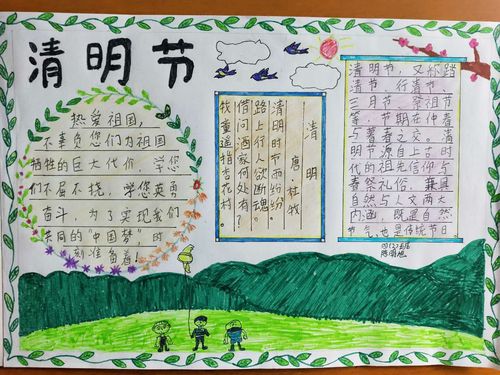 清明节
热爱祖国,
不辜负您们为祖国
牺牲的巨大代价
学您
们不屈不挠,学您英勇
奋斗,为了实现我们
共同的“中国梦”时
刻准备着!
清明
唐杜牧
清明时节雨纷纷,
路上行人欲断魂。
借问酒家何处有?
牧童遥指杏花村。
清明节,又称踏
青节、行清节、
三月节、祭祖节
等,节期在仲春
与暮春之交。清
明节源自上古时
代的祖先信仰与
春祭礼俗,兼具
自然与人文两大
内涵,既是自然
节气,也是传统节日